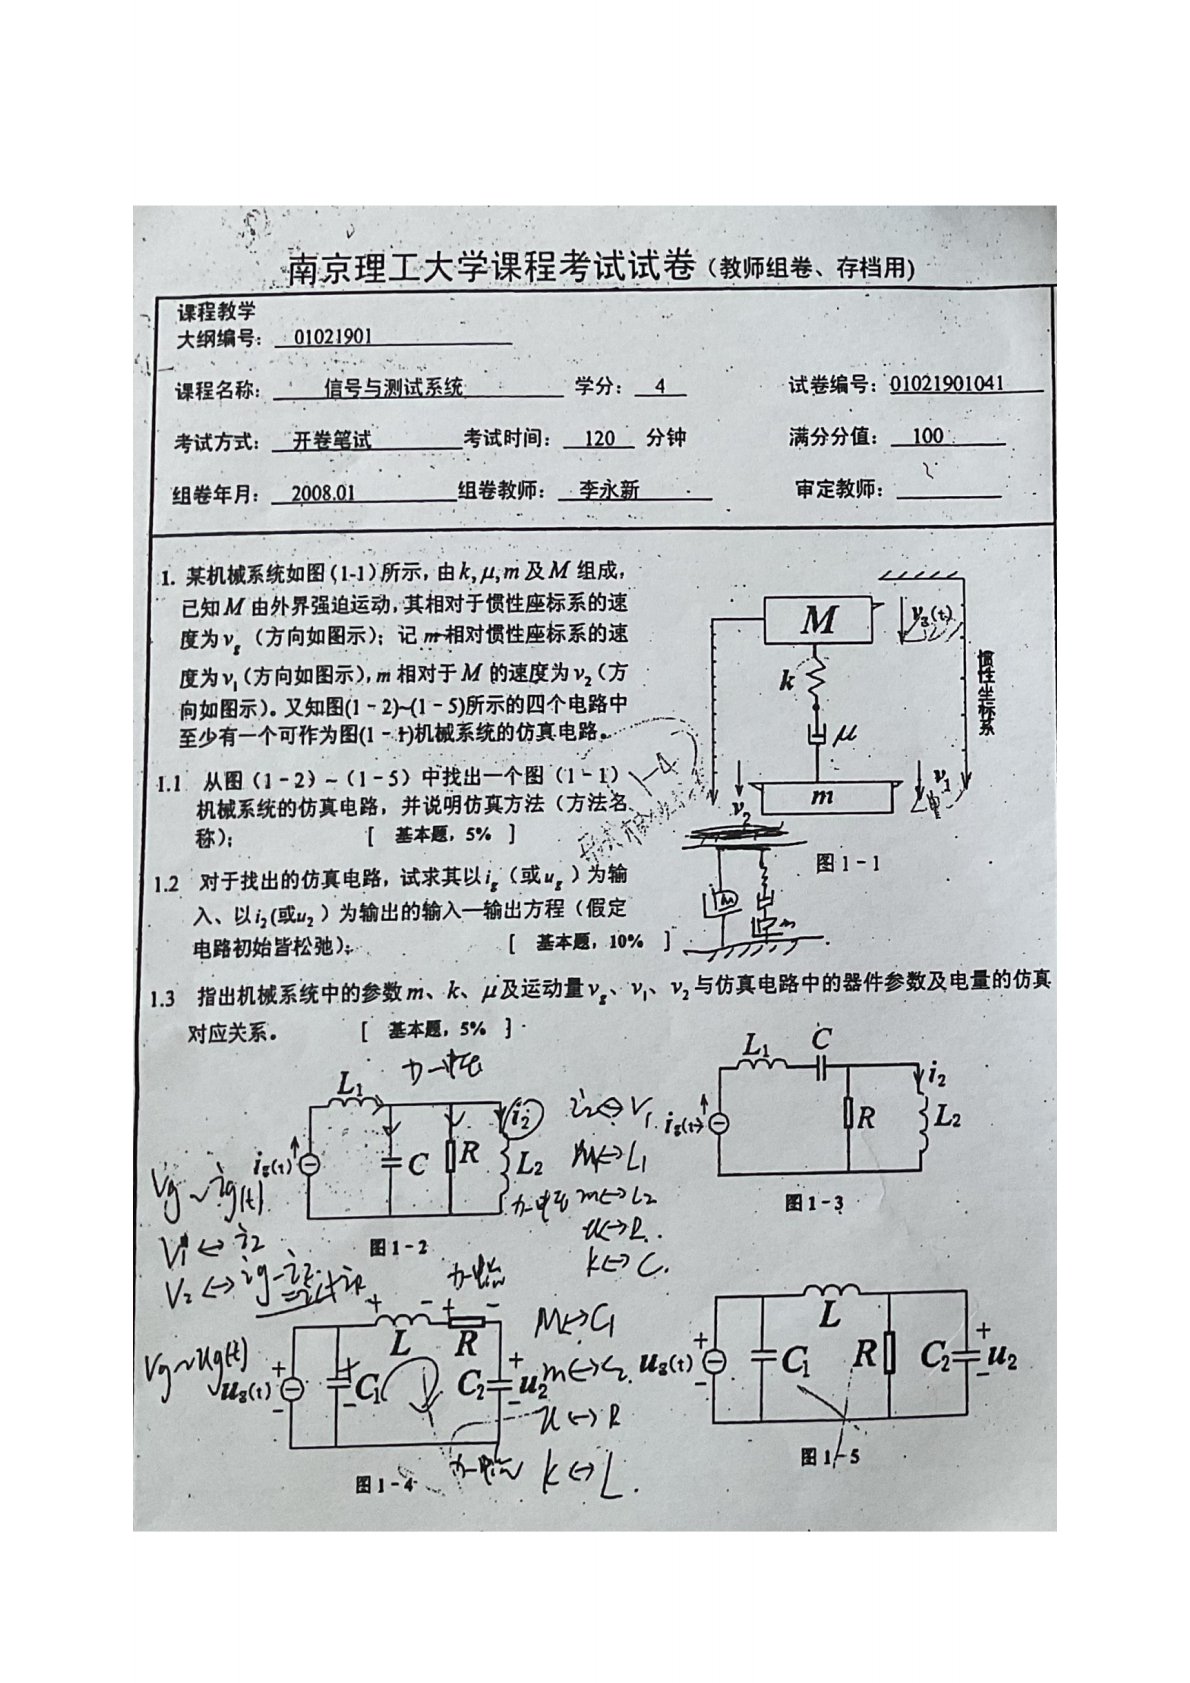 南京理工大学课程考试试卷(教师组卷、存档用)
课程教学
大纲编号: 01021901
课程名称: 信号与测试系统 学分: 4 试卷编号: 01021901041
考试方式: 开卷笔试 考试时间: 120 分钟 满分分值: 100
组卷年月: 2008.01 组卷教师: 李永新 审定教师:
1. 某机械系统如图(1-1)所示,由k,μ,m及M 组成,
已知M 由外界强迫运动,其相对于惯性座标系的速
度为vg(方向如图示);记m相对惯性座标系的速
度为v1(方向如图示),m相对于M 的速度为v2(方
向如图示)。又知图(1-2)~(1-5)所示的四个电路中
至少有一个可作为图(1-1)机械系统的仿真电路。
1.1 从图(1-2)~(1-5)中找出一个图(1-1)
机械系统的仿真电路,并说明仿真方法(方法名
称); [ 基本题,5% ]
1.2 对于找出的仿真电路,试求其以ig(或ug)为输
入、以i2(或u2)为输出的输入—输出方程(假定
电路初始皆松弛); [ 基本题,10% ]
1.3 指出机械系统中的参数m、k、μ及运动量vg、v1、v2与仿真电路中的器件参数及电量的仿真
对应关系。 [ 基本题,5% ]
M
k
μ
m
v2
v1
惯性坐标系
图1-1
1-4
m
m
L1
ig(t)
C
R
i2
L2
图1-2
L1
C
ig(t)
R
i2
L2
图1-3
i2⇔V1
M↔L1
m↔L2
u↔R
k↔C.
Vg~ig(t)
V1↔i2
+ - + -
L
R
ug(t)
+
-
C1
+
-
C2
+
u2
-
图1-4
Vg~ug(t)
M↔C1
m↔C2
u↔R
k↔L.
L
+
ug(t)
-
C1
R
C2
+
u2
-
图1-5